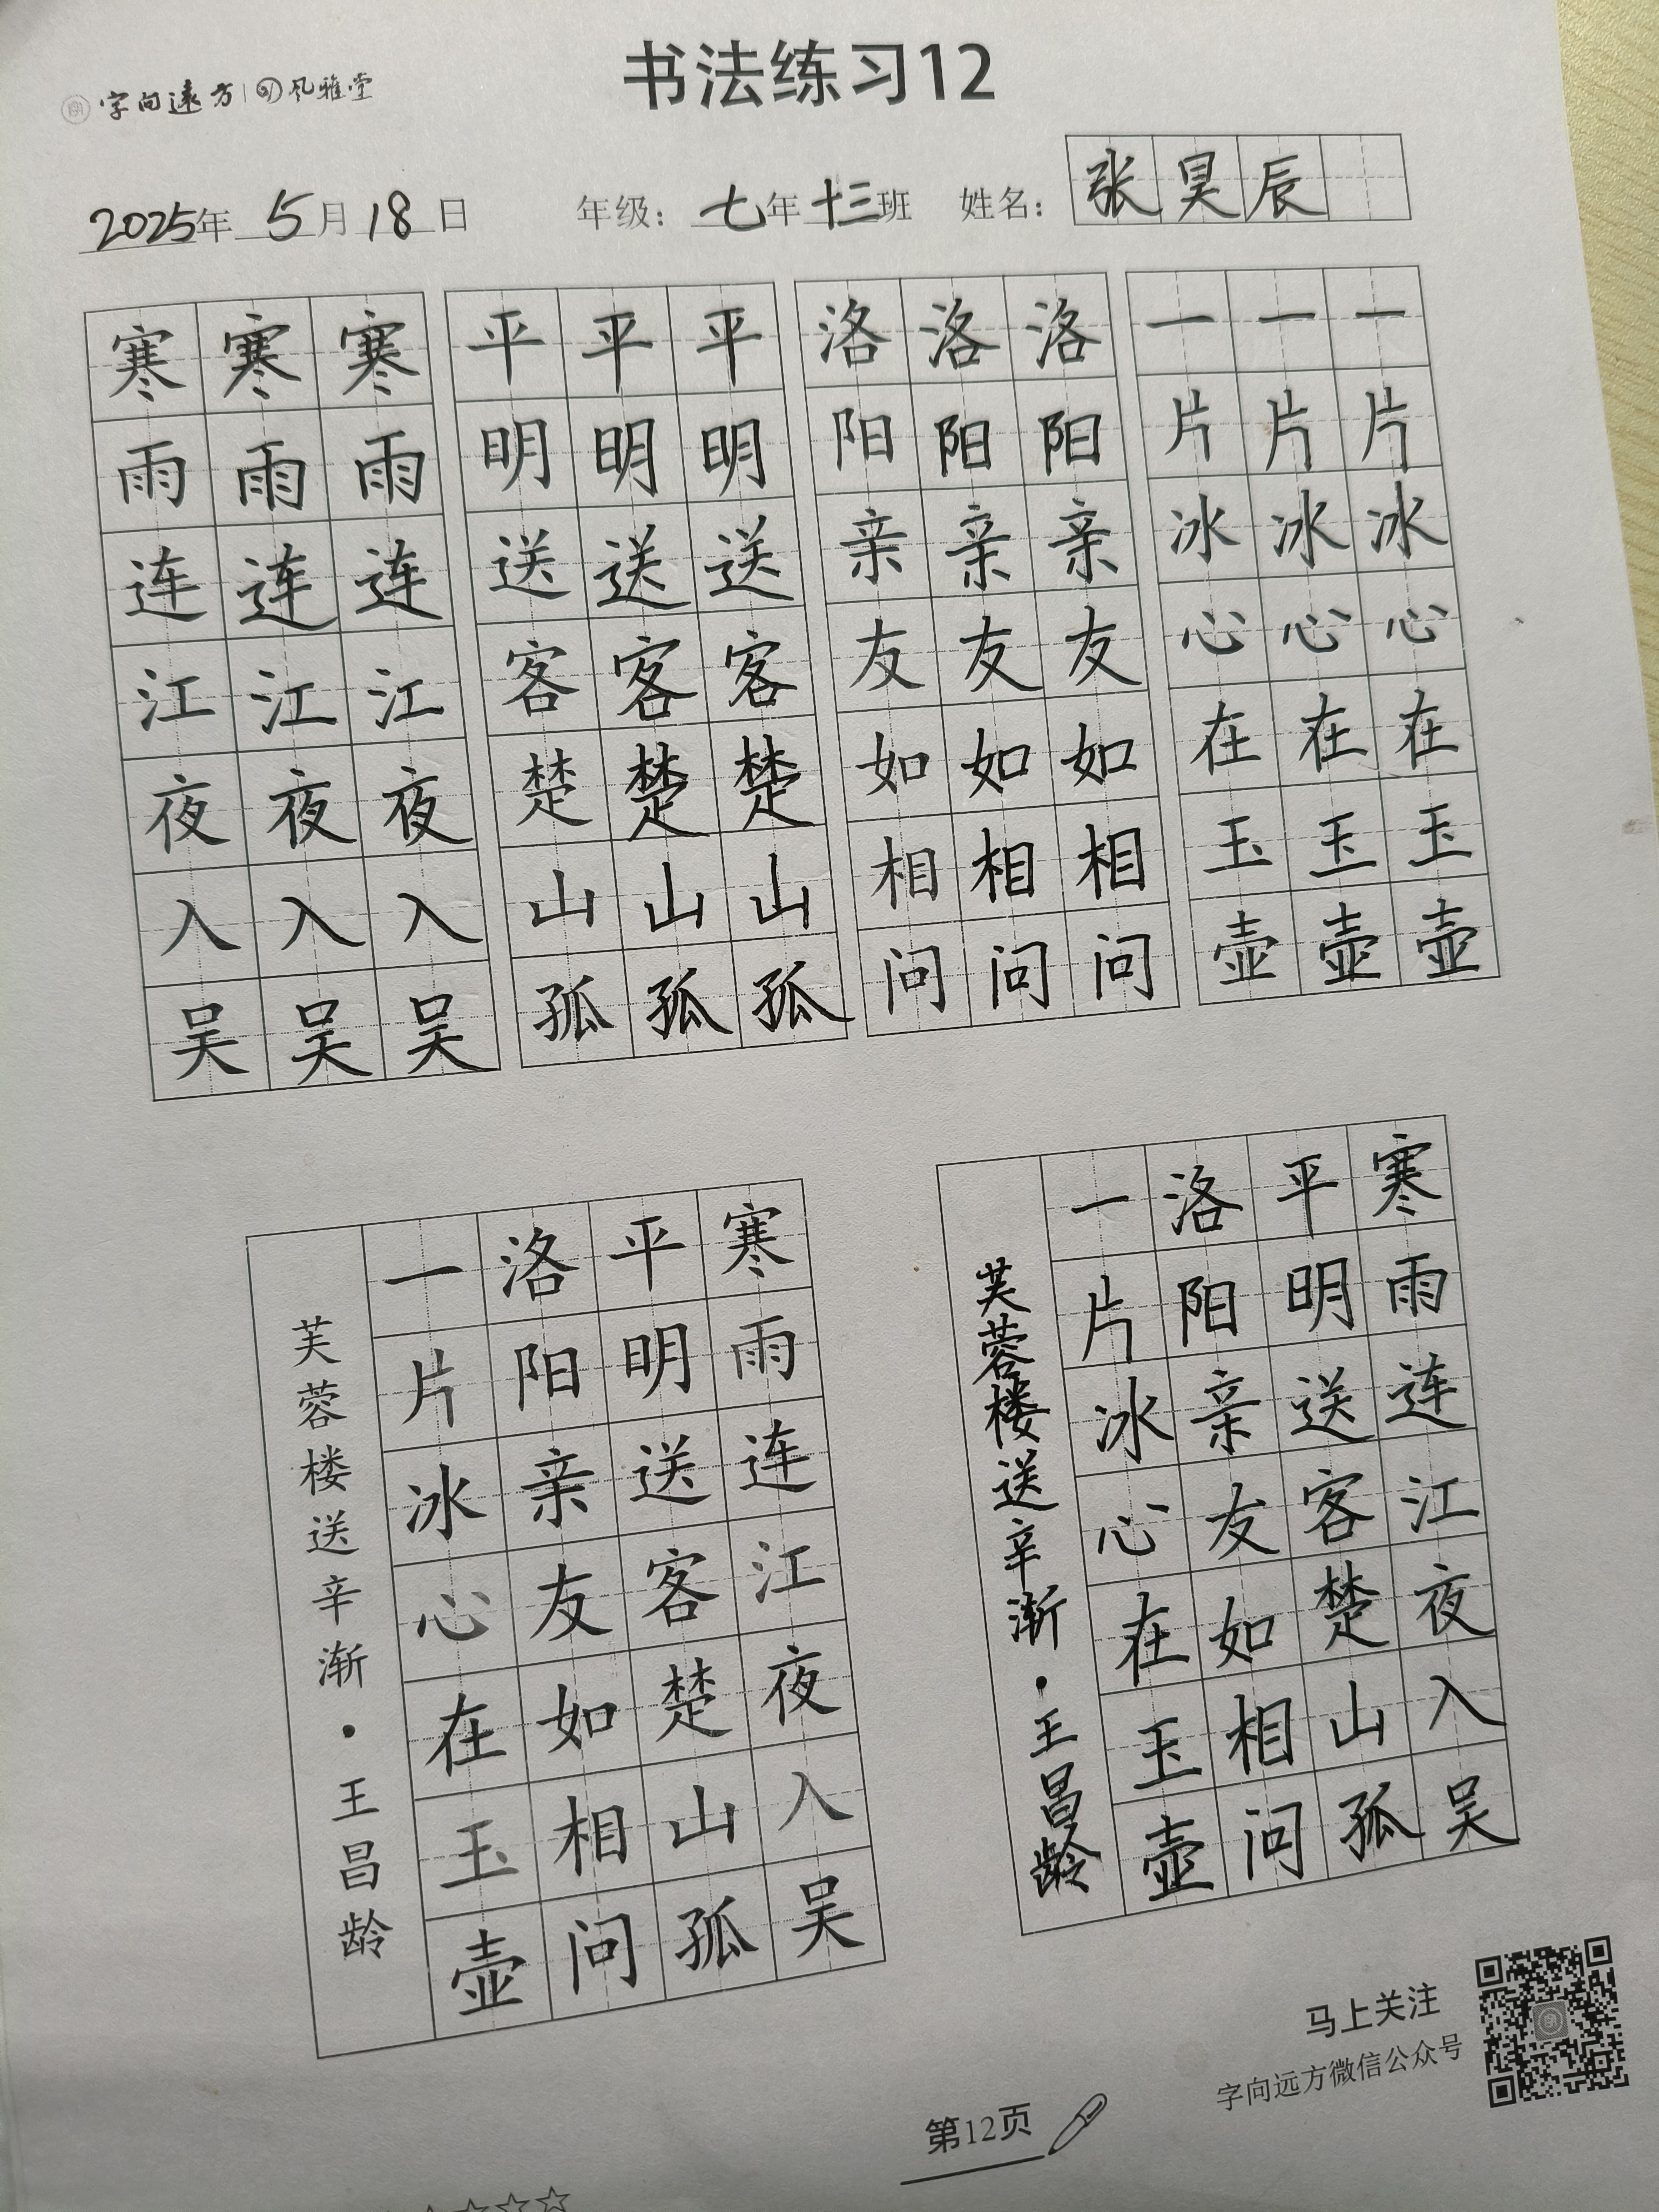 字向远方 风雅堂
书法练习12
2025年 5月 18日 年级：七年十三班 姓名：张昊辰
寒寒寒 平平平 洛洛洛 一一一
雨雨雨 明明明 阳阳阳 片片片
连连连 送送送 亲亲亲 冰冰冰
江江江 客客客 友友友 心心心
夜夜夜 楚楚楚 如如如 在在在
入入入 山山山 相相相 玉玉玉
吴吴吴 孤孤孤 问问问 壶壶壶
寒雨连江夜入吴
平明送客楚山孤
洛阳亲友如相问
一片冰心在玉壶
芙蓉楼送辛渐·王昌龄
寒雨连江夜入吴
平明送客楚山孤
洛阳亲友如相问
一片冰心在玉壶
芙蓉楼送辛渐·王昌龄
马上关注
字向远方微信公众号
第12页